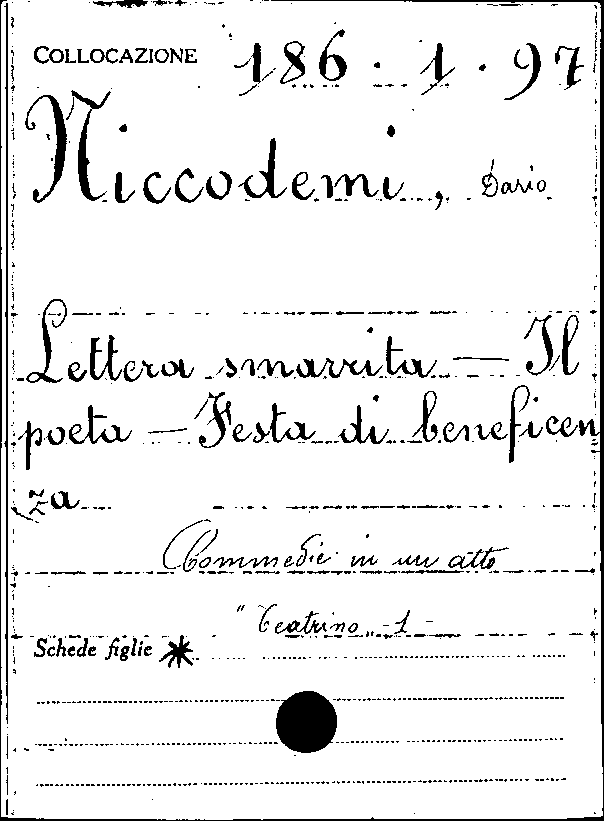 COLLOCAZIONE 186.1.97
Niccodemi, Dario
Lettera smarrita — Il
poeta — Festa di beneficen
za
Commedie in un atto
"Teatrino„ - 1 -
Schede figlie *